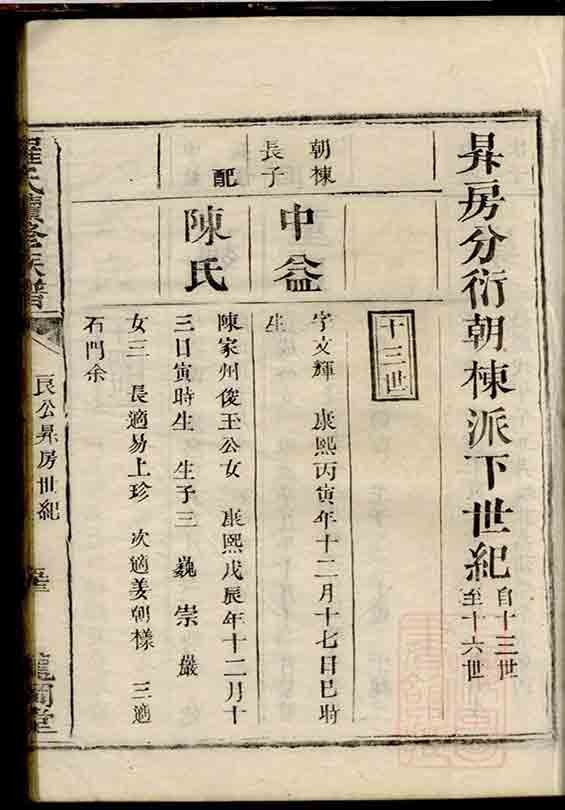 昇房分衍朝棟派下世紀
自十三世
至十六世
十三世
朝棟
長子
中益
字文輝 康熙丙寅年十二月十七日巳時
生
配
陳氏
陳家州俊玉公女 康熙戊辰年十二月十
三日寅時生 生子三 巍 崇 嚴
女三 長適易上珍 次適姜朝樣 三適
石門余
羅氏續修族譜
良公昇房世紀